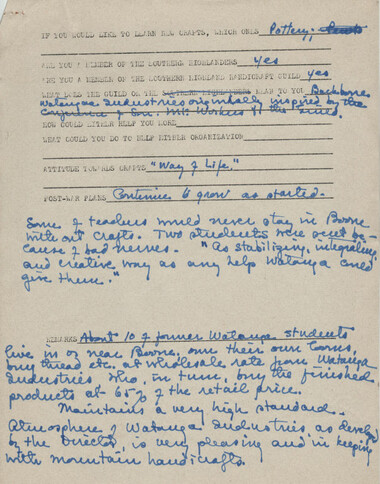 IF YOU WOULD LIKE TO LEARN NEW CRAFTS, WHICH ONES Pottery;
ARE YOU A MEMBER OF THE SOUTHERN HIGHLANDERS yes
ARE YOU A MEMBER OF THE SOUTHERN HIGHLAND HANDICRAFT GUILD yes
WHAT DOES THE GUILD OR THE SOUTHERN HIGHLANDERS MEAN TO YOU Backbone
Watauga Industries originally inspired by the
Conference of Sou. Mt. Workers & the Guild.
HOW COULD EITHER HELP YOU MORE
WHAT COULD YOU DO TO HELP EITHER ORGANIZATION
ATTITUDE TOWARDS CRAFTS "Way of Life."
POST-WAR PLANS Continue to grow as started.
Some of teachers would never stay in Boone
without crafts. Two students were sent be-
cause of bad nerves. "As stabilizing, integrating
and creative way as any help Watauga could
give them."
REMARKS About 10 of former Watauga students
live in or near Boone, own their own looms,
buy thread etc. at wholesale rate from Watauga
Industries who, in turn, buy the finished
products at 65% of the retail price.
Maintains a very high standard.
Atmosphere of Watauga Industries as developed
by the Director, is very pleasing and in keeping
with mountain handicrafts.